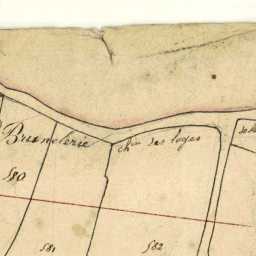 Brunelerie
ch.in des loges
580
581
582